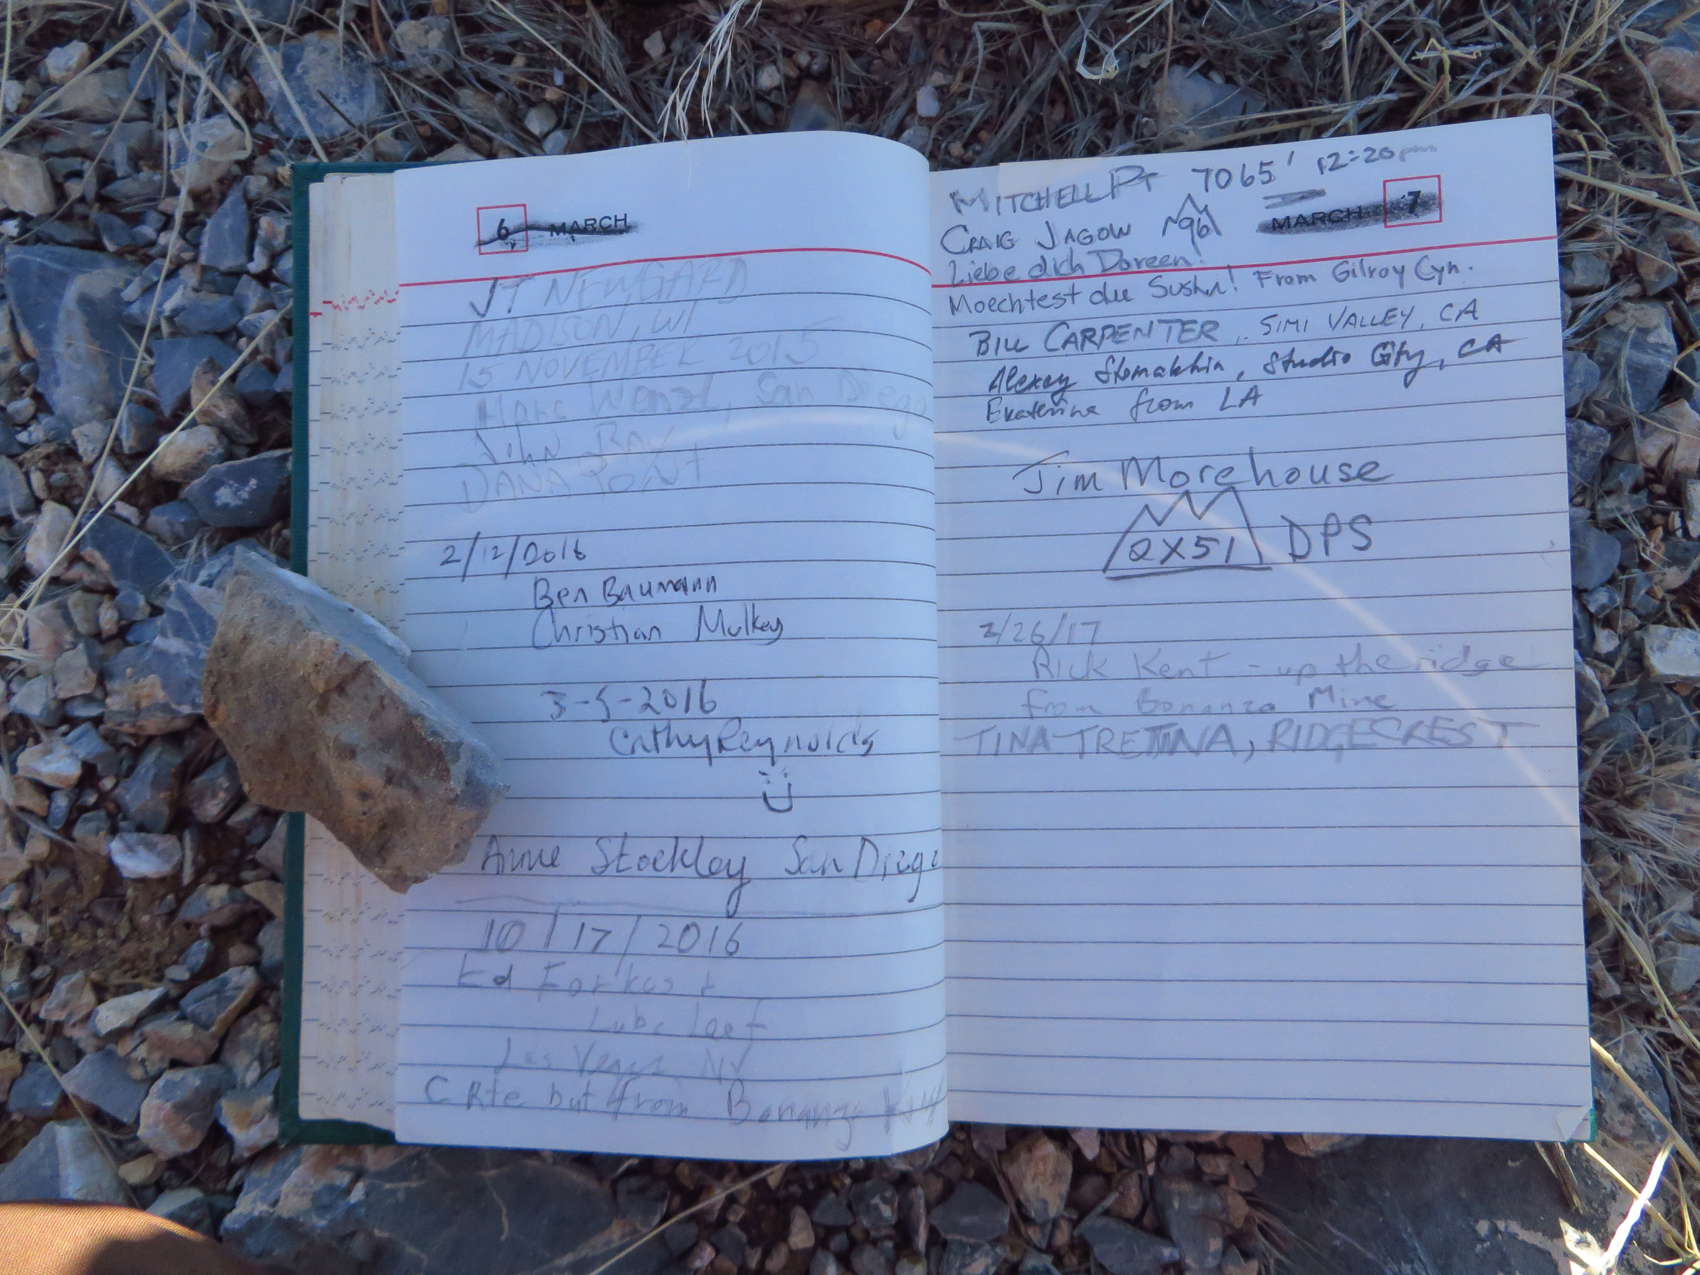 6 MARCH
JT NEWGARD
MADISON, WI
15 NOVEMBER 2015
Marc Wenzl, San Diego
John Ray
DANA POINT
2/12/2016
Ben Baumann
Christian Mulkey
3-5-2016
Cathy Reynolds
Anne Stockley San Diego
10/17/2016
Ed Forkos +
Las Vegas NV
C Rte but from Bonanza
MITCHELL PT 7065' 12:20 pm
MARCH 7
CRAIG JAGOW 96
Liebe dich Doreen!
Moechtest du Sushi! From Gilroy Cyn.
BILL CARPENTER, SIMI VALLEY, CA
Alexey Stomakhin, Studio City, CA
Ekaterina from LA
Jim Morehouse
2X51 DPS
2/26/17
Rick Kent - up the ridge
from Bonanza Mine
TINA TRETINA, RIDGECREST